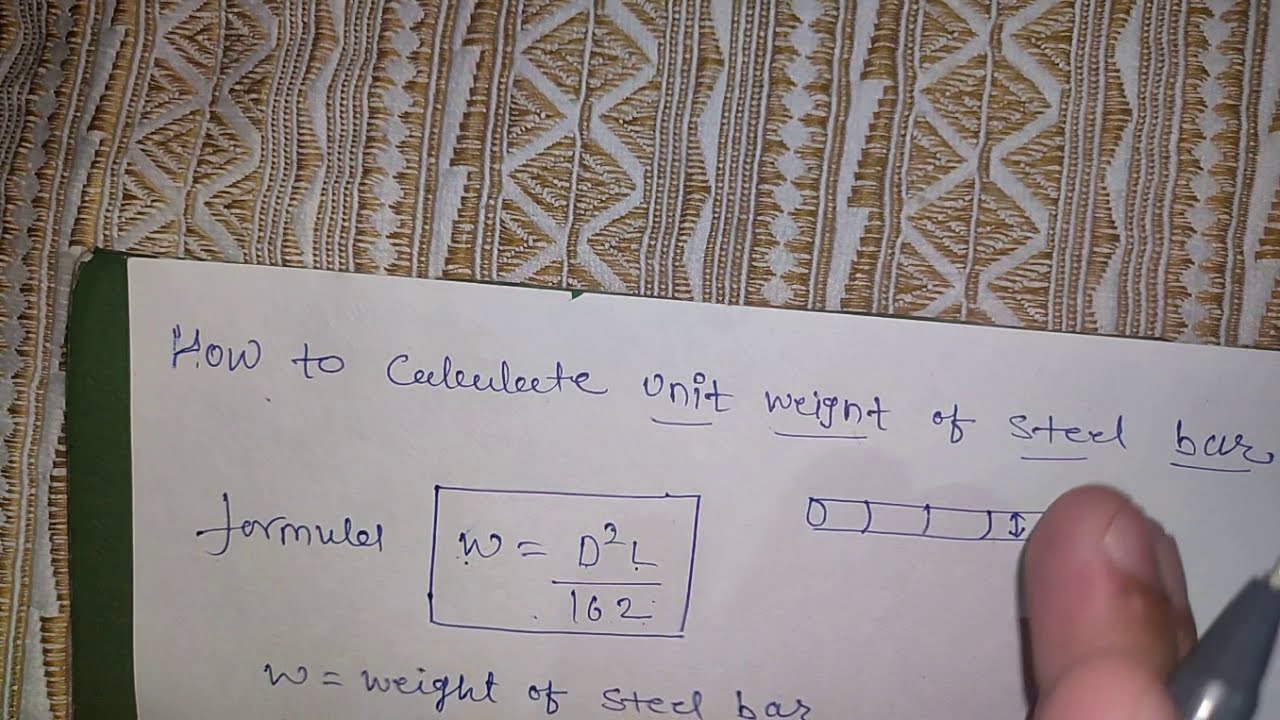 How to Calculate unit weight of steel bar
formula
W = D²L
162
W = weight of steel bar